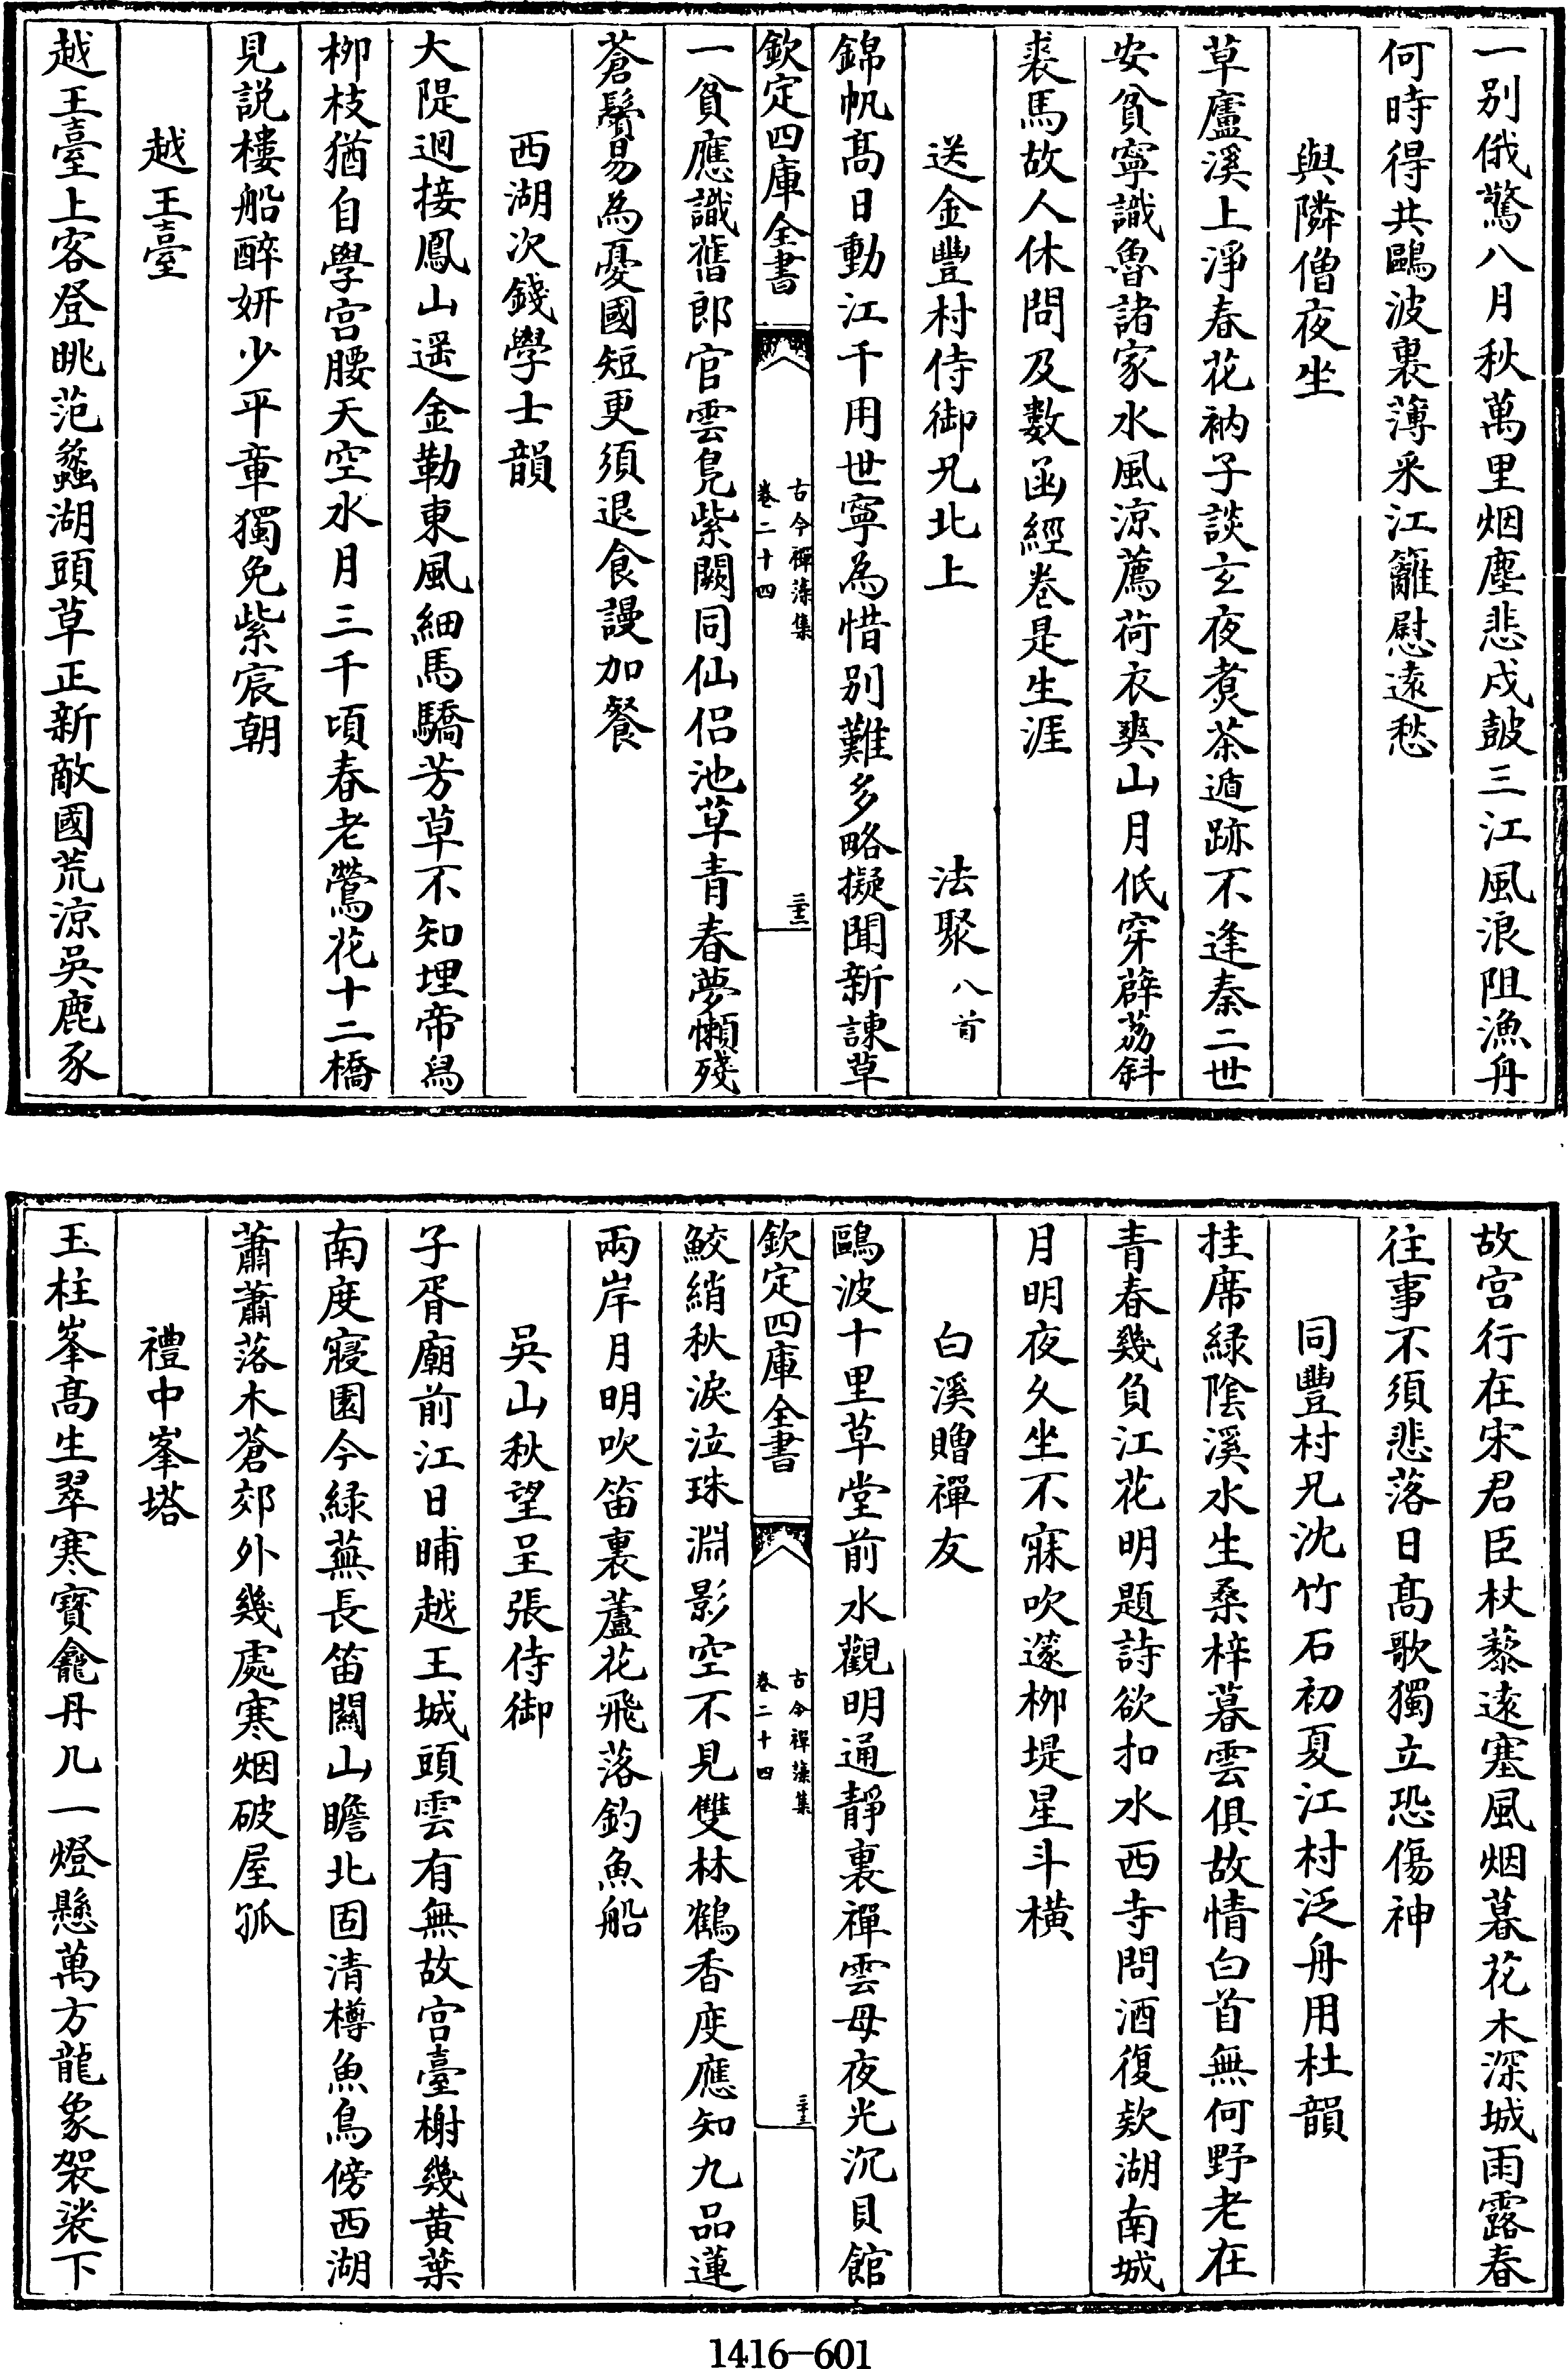 一别俄驚八月秋萬里烟塵悲戍鼓三江風浪阻漁舟
何時得共鷗波裏薄采江籬慰遠愁
與隣僧夜坐
草廬溪上淨春花衲子談玄夜煑茶遁跡不逢秦二世
安貧寧識魯諸家水風涼薦荷衣爽山月低穿薜荔斜
裘馬故人休問及數函經卷是生涯
送金豐村侍御兄北上 法聚 八首
錦帆髙日動江千用世寧為惜别難多略擬聞新諫草
欽定四庫全書 古今禪藻集 卷二十四 三十三
一貧應識舊郎官雲凫紫闕同仙侣池草青春夢懶殘
蒼鬢易為憂國短更須退食謾加餐
西湖次錢學士韻
大隄迴接鳳山遥金勒東風細馬驕芳草不知埋帝舄
柳枝猶自學宫腰天空水月三千頃春老鶯花十二橋
見説樓船醉妍少平章獨免紫宸朝
越王臺
越王臺上客登眺范蠡湖頭草正新敵國荒涼吳鹿豕
故宫行在宋君臣杖藜遠塞風烟暮花木深城雨露春
往事不須悲落日髙歌獨立恐傷神
同豐村兄沈竹石初夏江村泛舟用杜韻
挂席緑陰溪水生桑梓暮雲俱故情白首無何野老在
青春幾負江花明題詩欲扣水西寺問酒復欵湖南城
月明夜久坐不寐吹邃柳堤星斗橫
白溪贈禪友
鷗波十里草堂前水觀明通靜裏禪雲母夜光沉貝館
欽定四庫全書 古今禪藻集 卷二十四 三十三
鮫綃秋淚泣珠淵影空不見雙林鶴香度應知九品蓮
兩岸月明吹笛裏蘆花飛落釣魚船
吳山秋望呈張侍御
子胥廟前江日晡越王城頭雲有無故宫臺榭幾黄葉
南度寢園今緑蕪長笛關山瞻北固清樽魚鳥傍西湖
蕭蕭落木蒼郊外幾處寒烟破屋孤
禮中峯塔
玉柱峯髙生翠寒寳龕丹几一燈懸萬方龍象袈裟下
1416-601